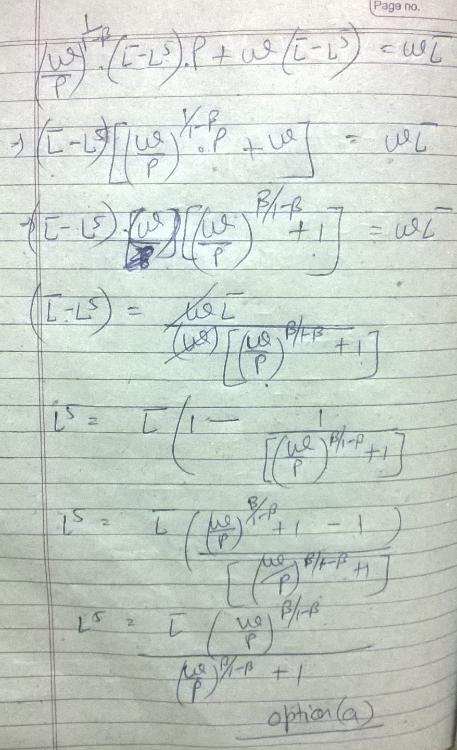 Page no.
(w/P)^{1/1-β} . (L̄-L^s).P + w(L̄-L^s) = wL̄
→ (L̄-L^s)[(w/P)^{1/1-β}.P + w] = wL̄
→ (L̄-L^s).(w)[(w/P)^{β/1-β} + 1] = wL̄
(L̄-L^s) = wL̄ / (w)[(w/P)^{β/1-β} + 1]
L^s = L̄ (1 - 1 / [(w/P)^{β/1-β} + 1]
L^s = L̄ ((w/P)^{β/1-β} + 1 - 1) / [(w/P)^{β/1-β} + 1]
L^s = L̄ (w/P)^{β/1-β} / (w/P)^{β/1-β} + 1
option(a)